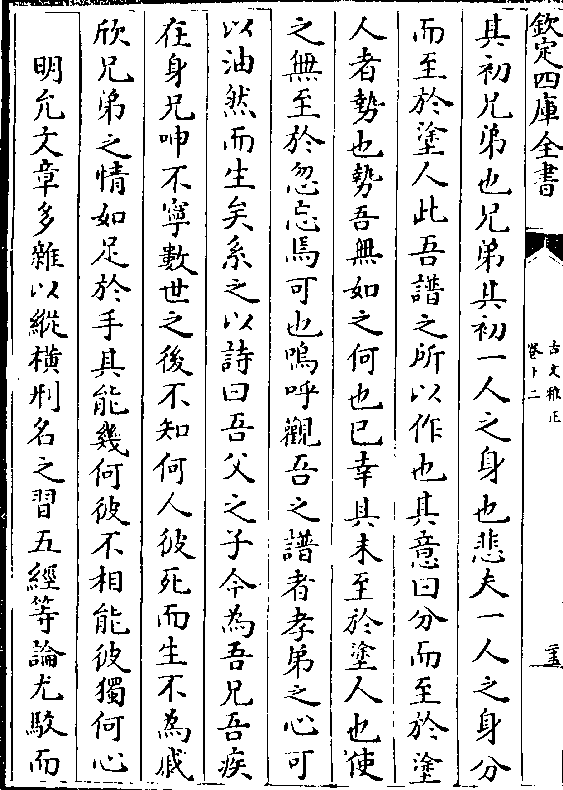 欽定四庫全書
古文雅正
卷十二
其初兄弟也兄弟其初一人之身也悲夫一人之身分
而至於塗人此吾譜之所以作也其意曰分而至於塗
人者勢也勢吾無如之何也已幸其未至於塗人也使
之無至於忽忘焉可也嗚呼觀吾之譜者孝弟之心可
以油然而生矣系之以詩曰吾父之子今為吾兄吾疾
在身兄呻不寧數世之後不知何人彼死而生不為戚
欣兄弟之情如足於手其能幾何彼不相能彼獨何心
明允文章多雜以縱横刑名之習五經等論尤駁而